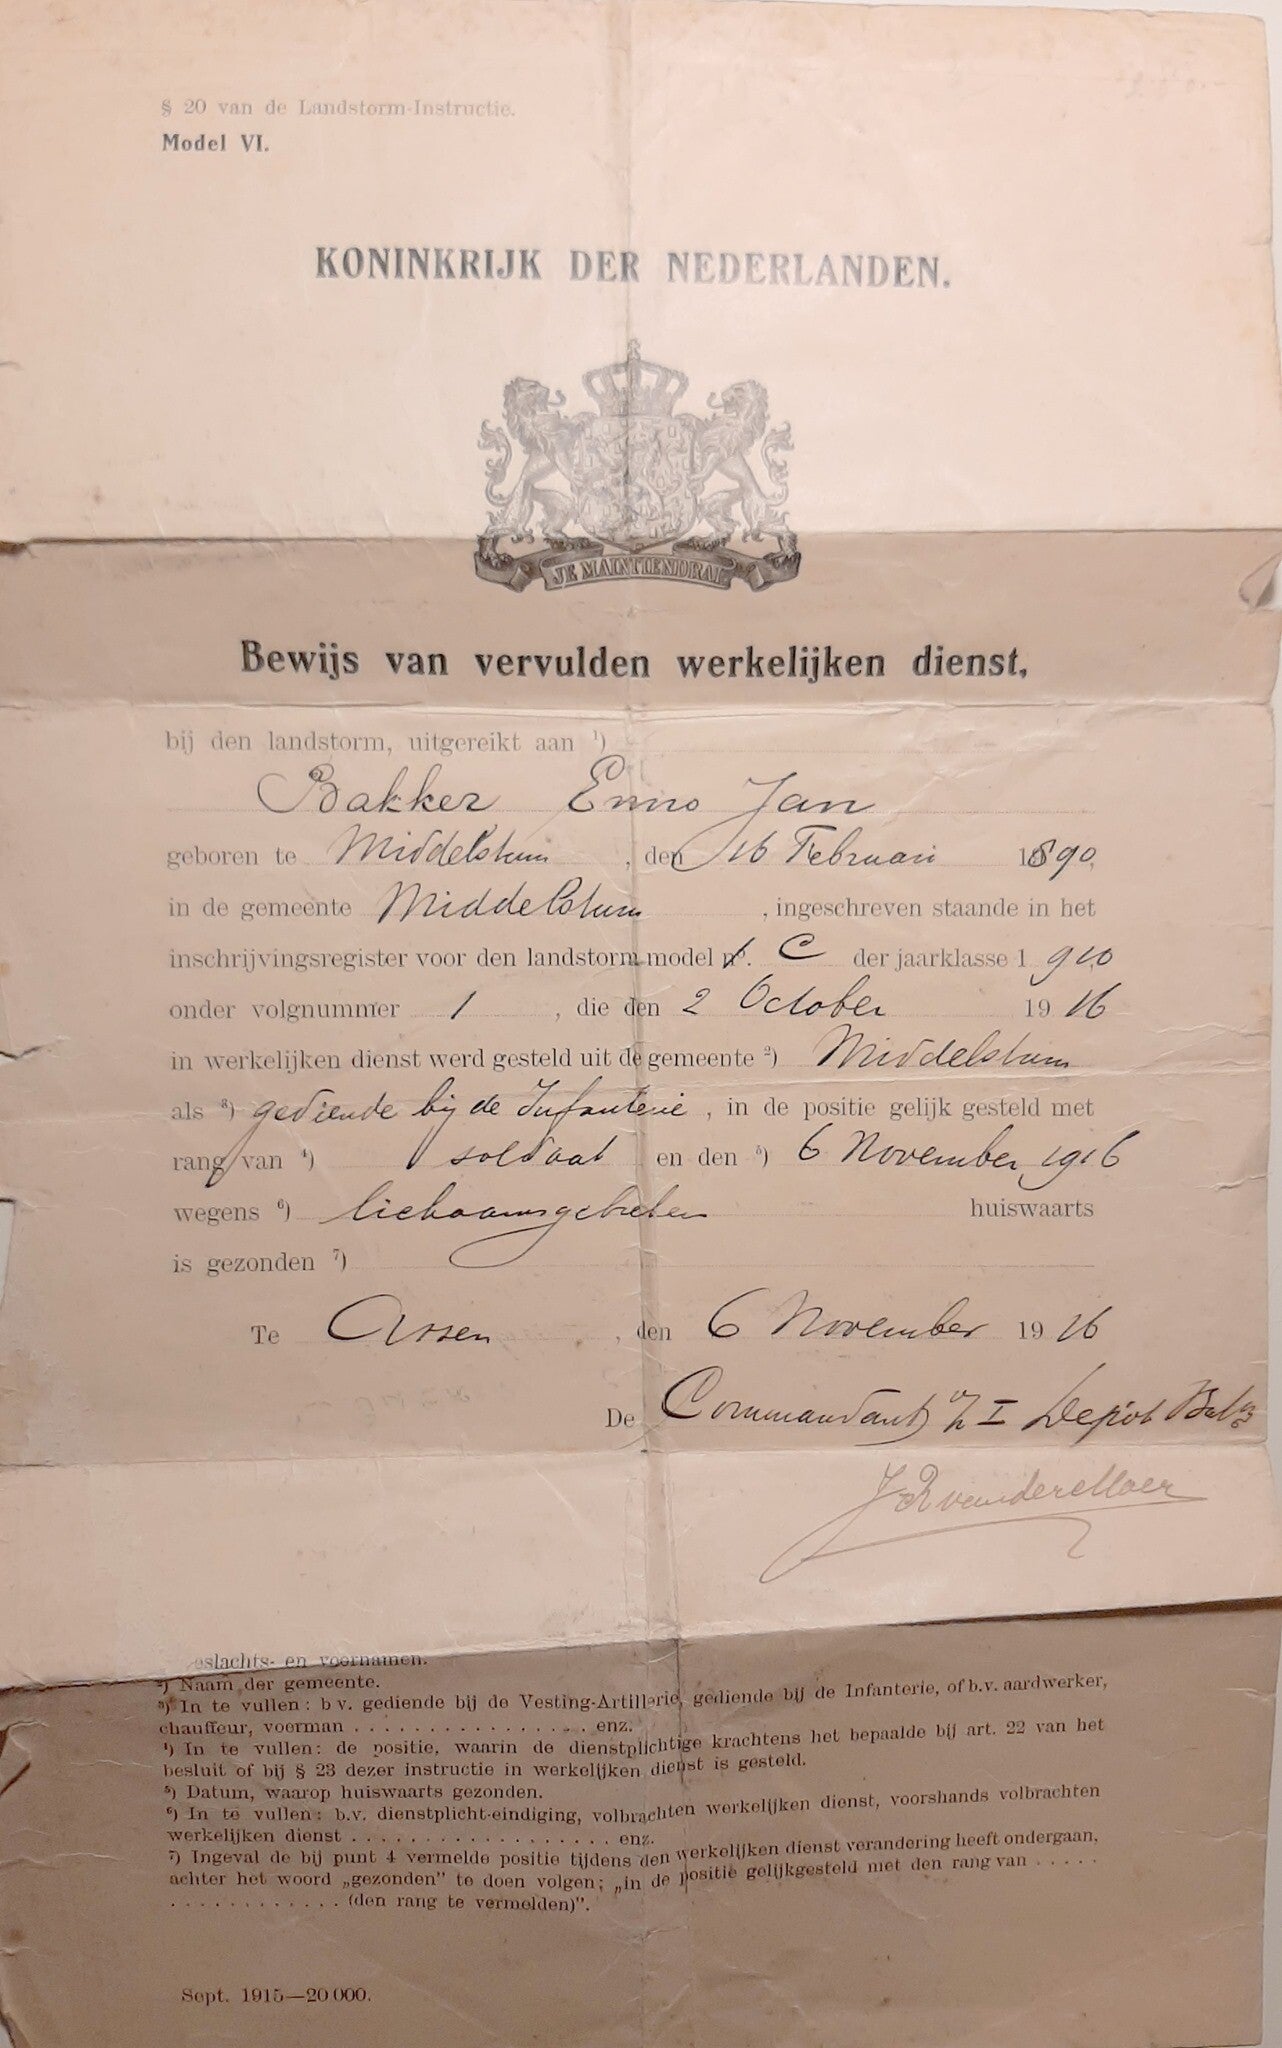 § 20 van de Landstorm-Instructie.
Model VI.
KONINKRIJK DER NEDERLANDEN.
JE MAINTIENDRAI
Bewijs van vervulden werkelijken dienst,
bij den landstorm, uitgereikt aan ¹)
Bakker Enno Jan
geboren te Middelstum, den 16 Februari 1890,
in de gemeente Middelstum, ingeschreven staande in het
inschrijvingsregister voor den landstorm model n°. C der jaarklasse 1910
onder volgnummer 1, die den 2 October 1916
in werkelijken dienst werd gesteld uit de gemeente ²) Middelstum
als ³) gediende bij de Infanterie, in de positie gelijk gesteld met
rang van ⁴) soldaat en den ⁵) 6 November 1916
wegens ⁶) lichaamsgebreken huiswaarts
is gezonden ⁷)
Te Assen, den 6 November 1916
De Commandant I Depot
eslachts- en voornamen.
²) Naam der gemeente.
³) In te vullen: b v. gediende bij de Vesting-Artillerie, gediende bij de Infanterie, of b.v. aardwerker,
chauffeur, voerman . . . . . . . . . . . . . . . . . enz.
⁴) In te vullen: de positie, waarin de dienstplichtige krachtens het bepaalde bij art. 22 van het
besluit of bij § 23 dezer instructie in werkelijken dienst is gesteld.
⁵) Datum, waarop huiswaarts gezonden.
⁶) In te vullen: b.v. dienstplicht-eindiging, volbrachten werkelijken dienst, voorshands volbrachten
werkelijken dienst . . . . . . . . . . . . . . . . . . enz.
⁷) Ingeval de bij punt 4 vermelde positie tijdens den werkelijken dienst verandering heeft ondergaan,
achter het woord „gezonden" te doen volgen; „in de positie gelijkgesteld met den rang van . . . . .
. . . . . . . . . . . . (den rang te vermelden)".
Sept. 1915—20 000.